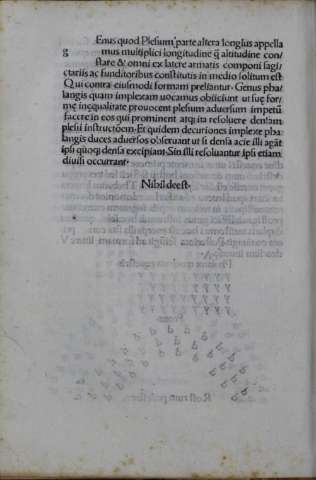 Enus quod Plesium parte altera longius appella
g mus multiplici longitudine q̃ altitudine con/
stare & omni ex latere armatis componi sagi/
ctariis ac funditoribus constitutis in medio solitum est
Qui contra eiusmodi formam preliantur. Genus pha/
langis quam implexam uocamus obiiciunt ut sue for/
me inequalitate prouocent plesium aduersum impetũ
facere in eos qui prominent atq; ita resoluere densam
plesii instructõem. Et quidem decuriones implexe pha/
langis duces aduersos obseruant ut si densa acie illi agãt
ipsi quoq; densa excipiant. Sin illi resoluantur ipsi etiam
diuisi occurrant.
Nihil deest.